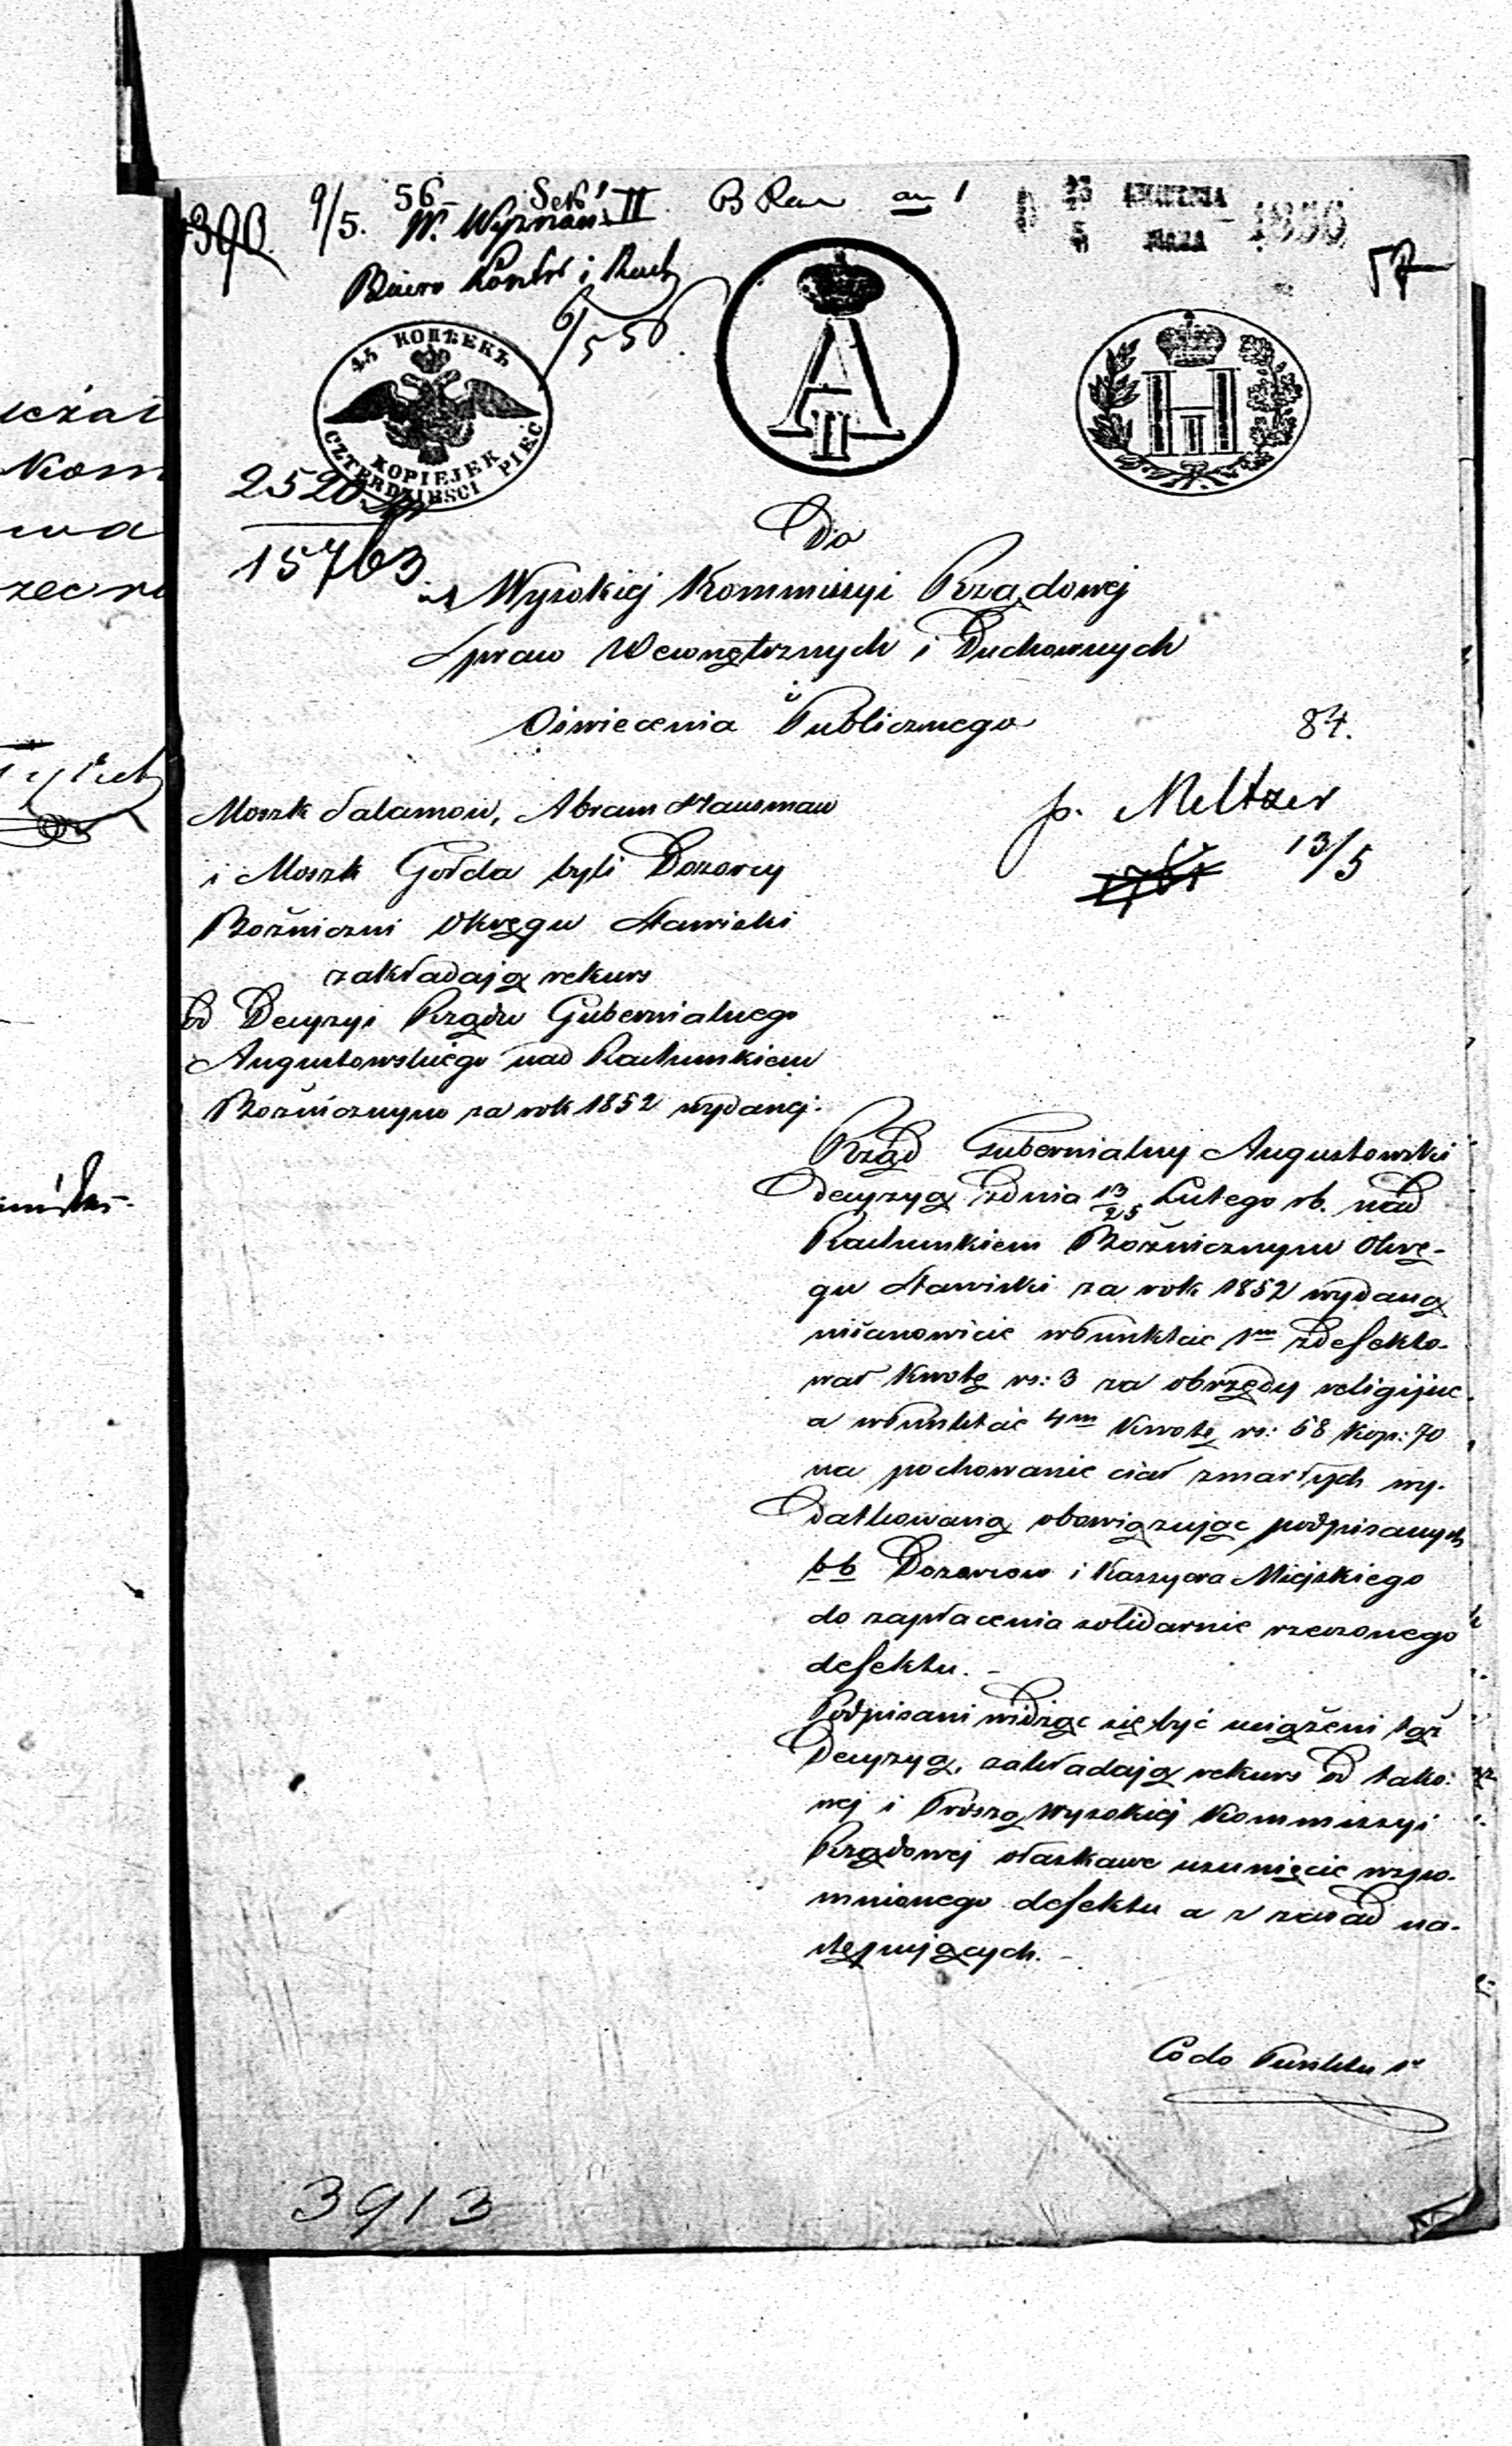 9/5. 56 Sek II B Rau 1
W. Wyznań
25 KWIETNIA 1856
5 MAJA
Biuro Kontr i Rach
6/5 56
57
45 КОПѢЕКЪ
KOPIEJEK
CZTERDZIEŚCI PIĘĆ
A II
H I
2520
15763
Do
Wysokiej Kommissyi Rządowej
Spraw Wewnętrznych i Duchownych
i
Oświecenia Publicznego
84.
p. Meltzer
13/5
Moszk Salamow, Abram Hausman
i Moszk Gołda byli Dozorcy
Bożniczni Okręgu Stawiski
zakładają rekurs
od Decyzyi Rządu Gubernialnego
Augustowskiego nad Rachunkiem
Bożnicznym za rok 1852 wydanej.
Rząd Gubernialny Augustowski
decyzyą zdnia 13/25 Lutego rb. nad
Rachunkiem Bożnicznym Okrę-
gu Stawiski za rok 1852 wydaną
mianowicie wPunkcie 1m zdefekto-
wał Kwotę rs: 3 za obrzędy religijne
a wPunktcie 4m Kwotę rs: 58 Kop: 70
na pochowanie ciał zmarłych wy-
datkowaną obowiązując podpisanych
bb Dozorców i Kassyera Miejskiego
do zapłacenia solidarnie rzeczonego
defektu. -
Podpisani widząc się być uciążeni tąż
Decyzyą, zakładają rekurs od tako-
wej i Proszą Wysokiej Kommissyi
Rządowej o łaskawe usunięcie wspo-
mnionego defektu a z zasad na-
stępujących. -
Co do Punktu 1o
3913